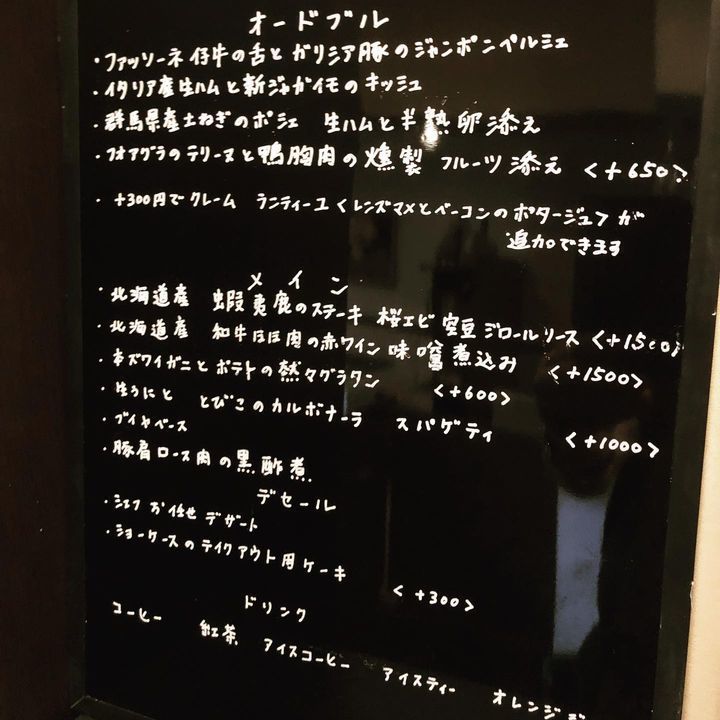 オードブル
・ファッソーネ仔牛の舌とガリシア豚のジャンボンペルシエ
・イタリア産生ハムと新ジャガイモのキッシュ
・群馬県産土ねぎのポシェ 生ハムと半熟卵添え
・フォアグラのテリーヌと鴨胸肉の燻製 フルーツ添え <+650>
・+300円でクレーム ランティーユ くレンズマメとベーコンのポタージュ> が
追加できます
メイン
・北海道産 蝦夷鹿のステーキ 桜エビ 空豆 ジロールソース <+1500>
・北海道産 和牛ほほ肉の赤ワイン味噌煮込み <+1500>
・本ズワイガニとポテトの熱々グラタン <+600>
・生うにと とびこのカルボナーラ スパゲティ <+1000>
・ブイヤベース
・豚肩ロース肉の黒酢煮
デセール
・シェフお任せデザート
・ショーケースのテイクアウト用ケーキ <+300>
ドリンク
コーヒー 紅茶 アイスコーヒー アイスティー オレンジ